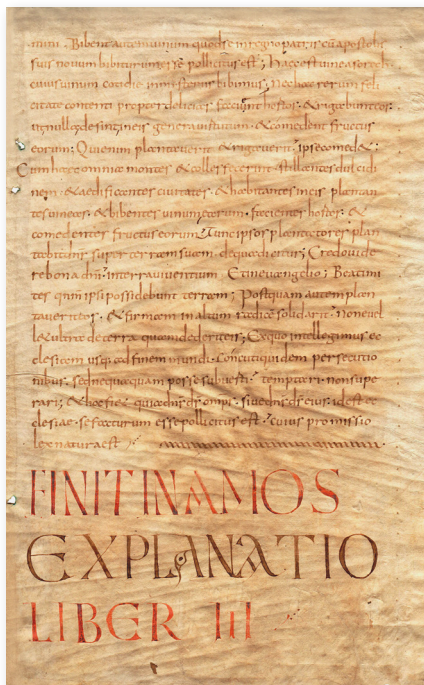 mini . Bibent autem uinum quod se in regno patris cũ apostolis
suis nouum bibiturum esse pollicitus est ; haec est uinea sorech
cuius uinum cotidie in misteriis bibimus . Nec hac rerum feli
citate contenti propter delicias faciunt hortos . & rigabunt eos .
ut nulla desint eis genera uirtutum . & comedent fructus
eorum ; Qui enim plantauerit & rigauerit . ipse comed& ;
Cum haec omnia montes & colles fecerint . stillantes dulcidi
nem . & aedificantes ciuitates . & habitantes in eis plantan
tes uineas . & bibentes uinum earum . facientes hortos . &
comedentes fructus eorum . Tunc ipsos plantatores plan
tabit dñs super terram suam . de qua dicitur ; Credo uide
re bona dñi in terra uiuentium . Et in euangelio ; Beati mi
tes qnm ipsi possidebunt terram ; Postquam autem plan
tauerit eos . & firmam in altum radice solidarit . non euel
l& ultra de terra quam dedit eis ; Ex quo intellegimus ec
clesiam usq; ad finem mundi . Concuti quidem persecutio
nibus . sed nequaquam posse subuerti . temptari . non supe
rari ; & hoc fiet quia dñs ds omps . siue dñs ds eius . id est ec
clesiae . se facturum esse pollicitus est . cuius promissio
lex naturae est
FINIT IN AMOS
EXPLANATIO
LIBER III